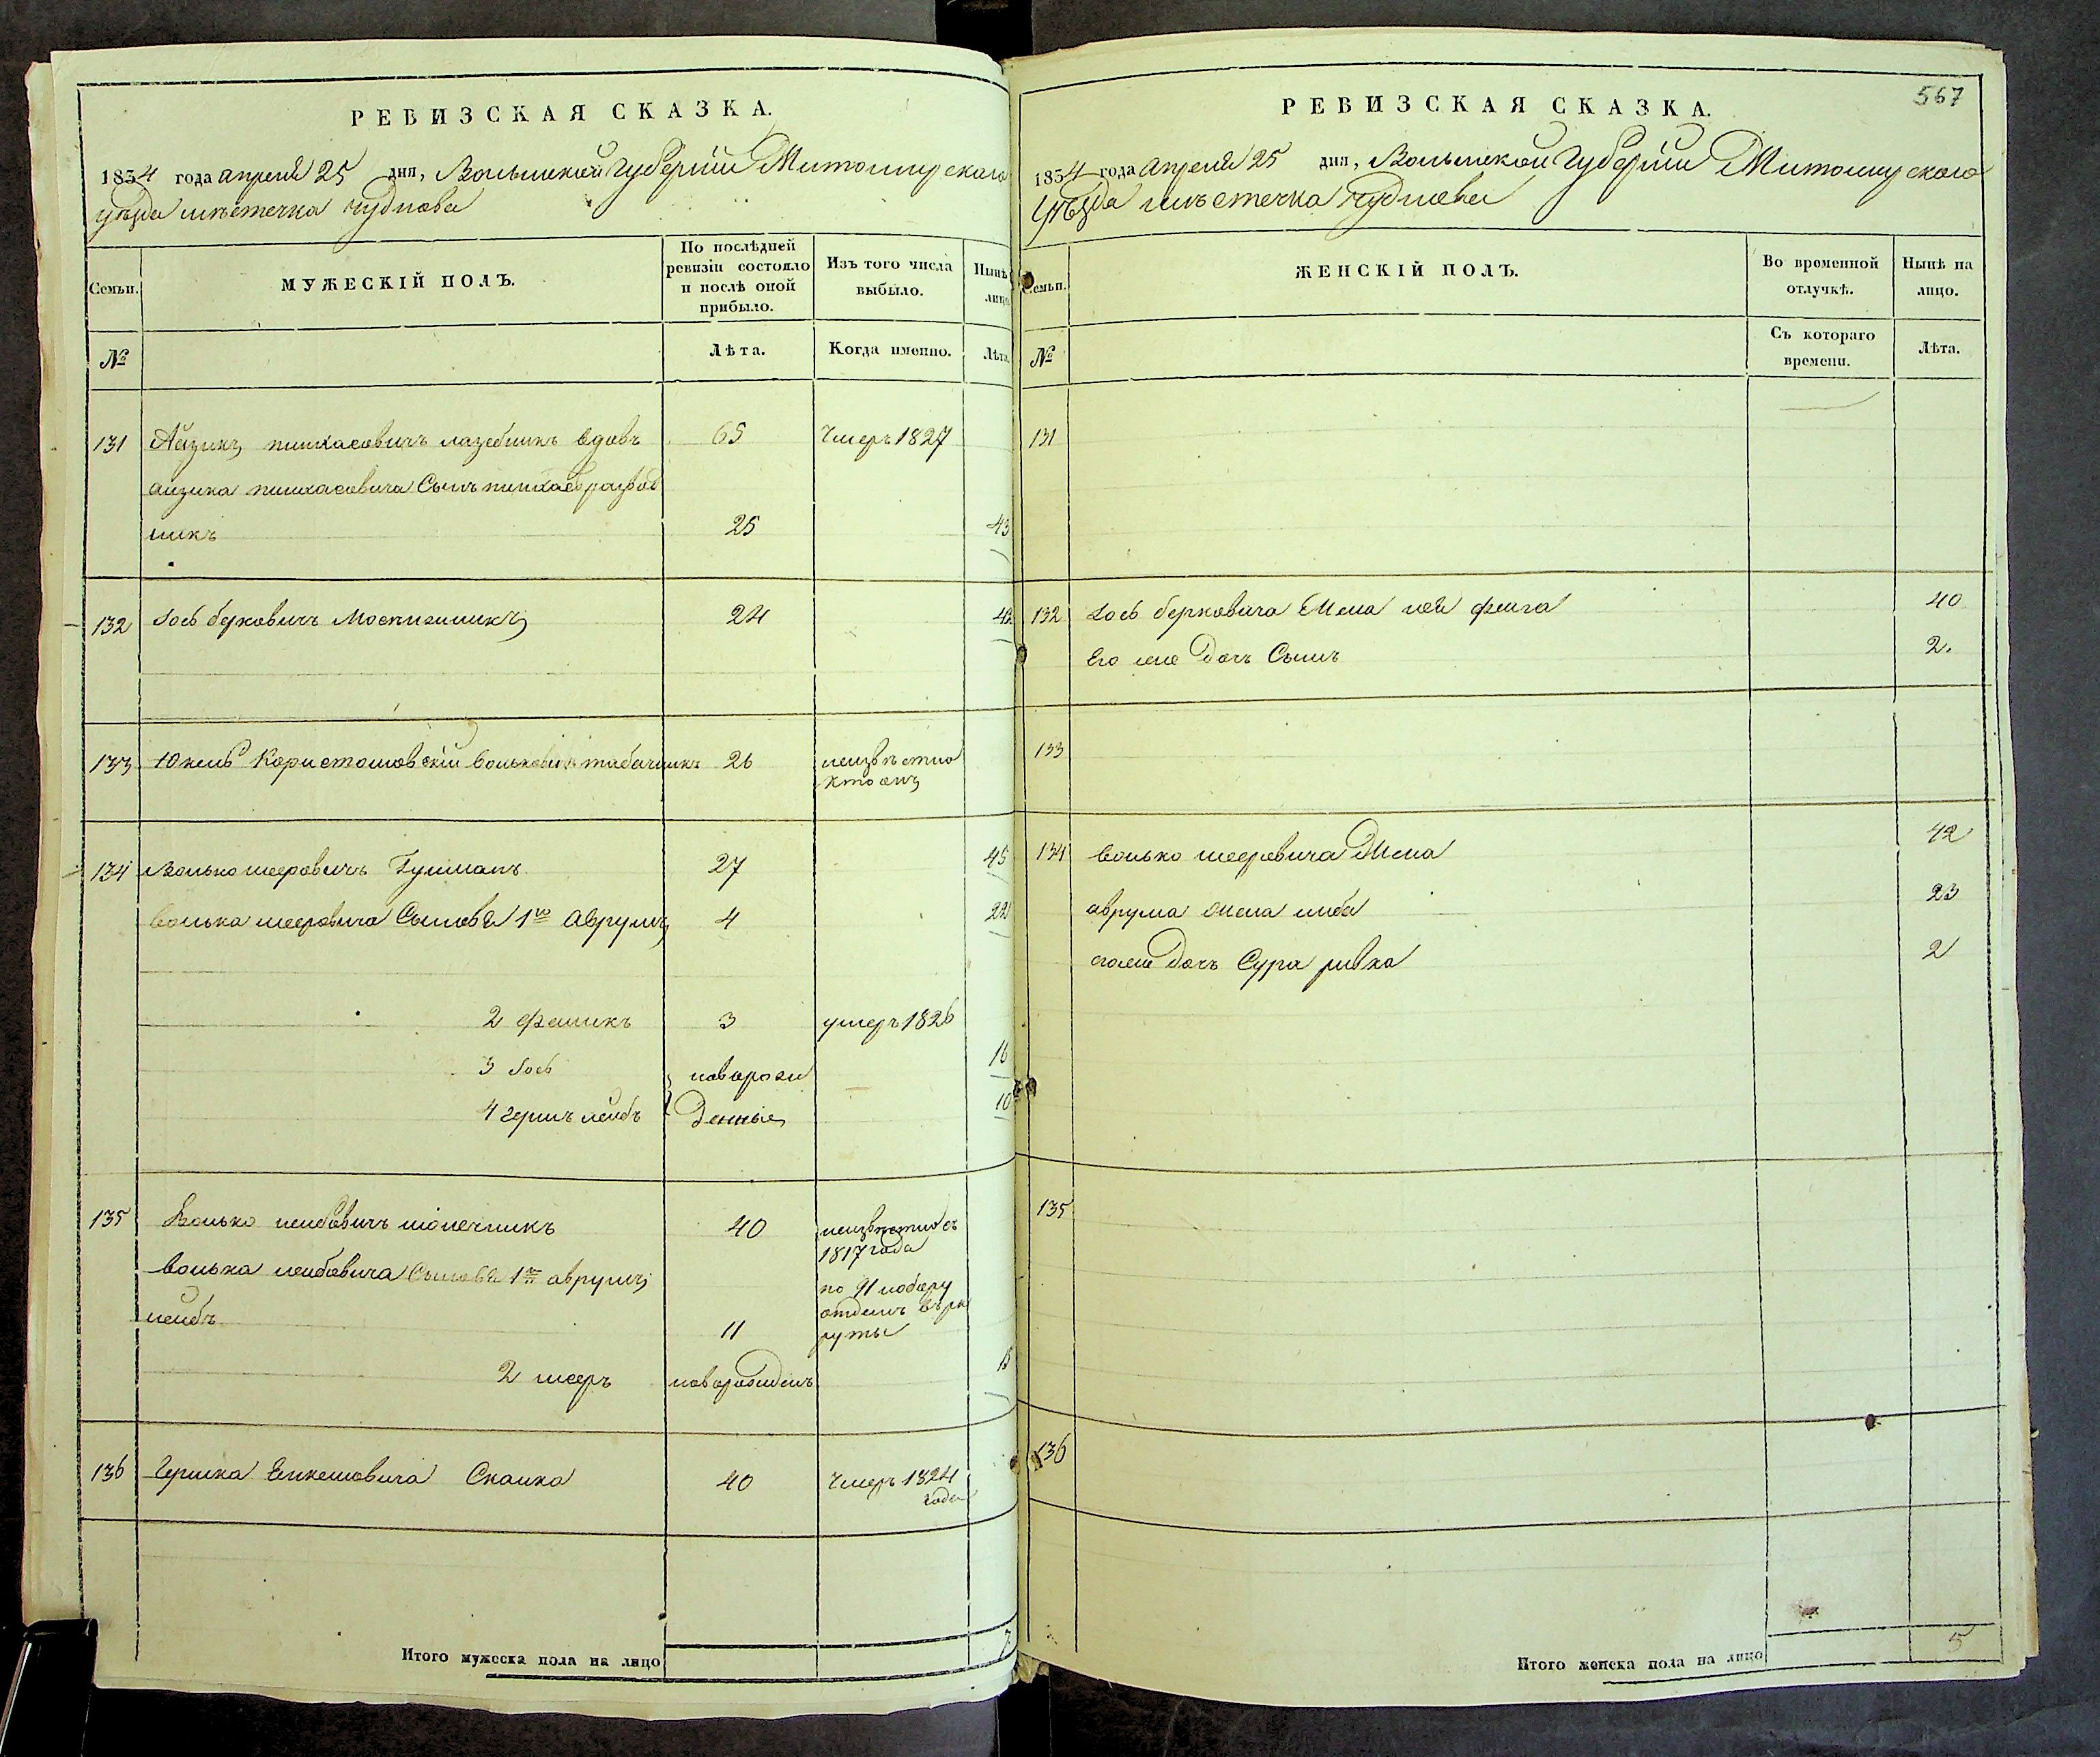 РЕВИЗСКАЯ СКАЗКА.
1834 года апреля 25 дня, Волынской Губернии Житомирского
уезда местечка Чуднова
Семьи.
МУЖЕСКІЙ ПОЛЪ.
По послѣдней ревизіи состояло и послѣ оной прибыло.
Изъ того числа выбыло.
Нынѣ лицо
№
Лѣта.
Когда именно.
Лѣта.
131 Айзикъ пинхасовичъ лазебникъ вдовъ 65 Умеръ 1827
аизика пинхасовича Сынъ пинхас
никъ 25 43
132 Іось берковичъ 24 42
133 волькович табачникъ 26 неизвѣстно
кто онъ
134 Волько шееровичъ Гушманъ 27 45
волька шееровича Сыновья 1й Аврумъ 4 22
2 фаликъ 3 умеръ 1826
3 Іось новорож 16
4 герш лейбъ денные 10
135 Волько лейбовичъ 40 неизвестно съ
1817 года
волька лейбовича Сыновья 1й аврумъ по 91 набору
лейбъ 11 отданъ въ рек
руты
2 шееръ новорожденъ 15
136 Гершка Сканка 40 Умеръ 1824
года
Итого мужеска пола на лицо 7
567
РЕВИЗСКАЯ СКАЗКА.
1834 года апреля 25 дня, Волынской Губернии Житомирского
уезда местечка Чуднова
Семьи.
ЖЕНСКІЙ ПОЛЪ.
Во временной отлучкѣ.
Нынѣ на лицо.
№
Съ котораго времени.
Лѣта.
131
132 Іось берковича Жена фейга 40
Его же дочь 2.
133
134 волько шееровича Жена 42
аврума жена 23
его же дочь Сура ривка 2
135
136
Итого женска пола на лицо 5